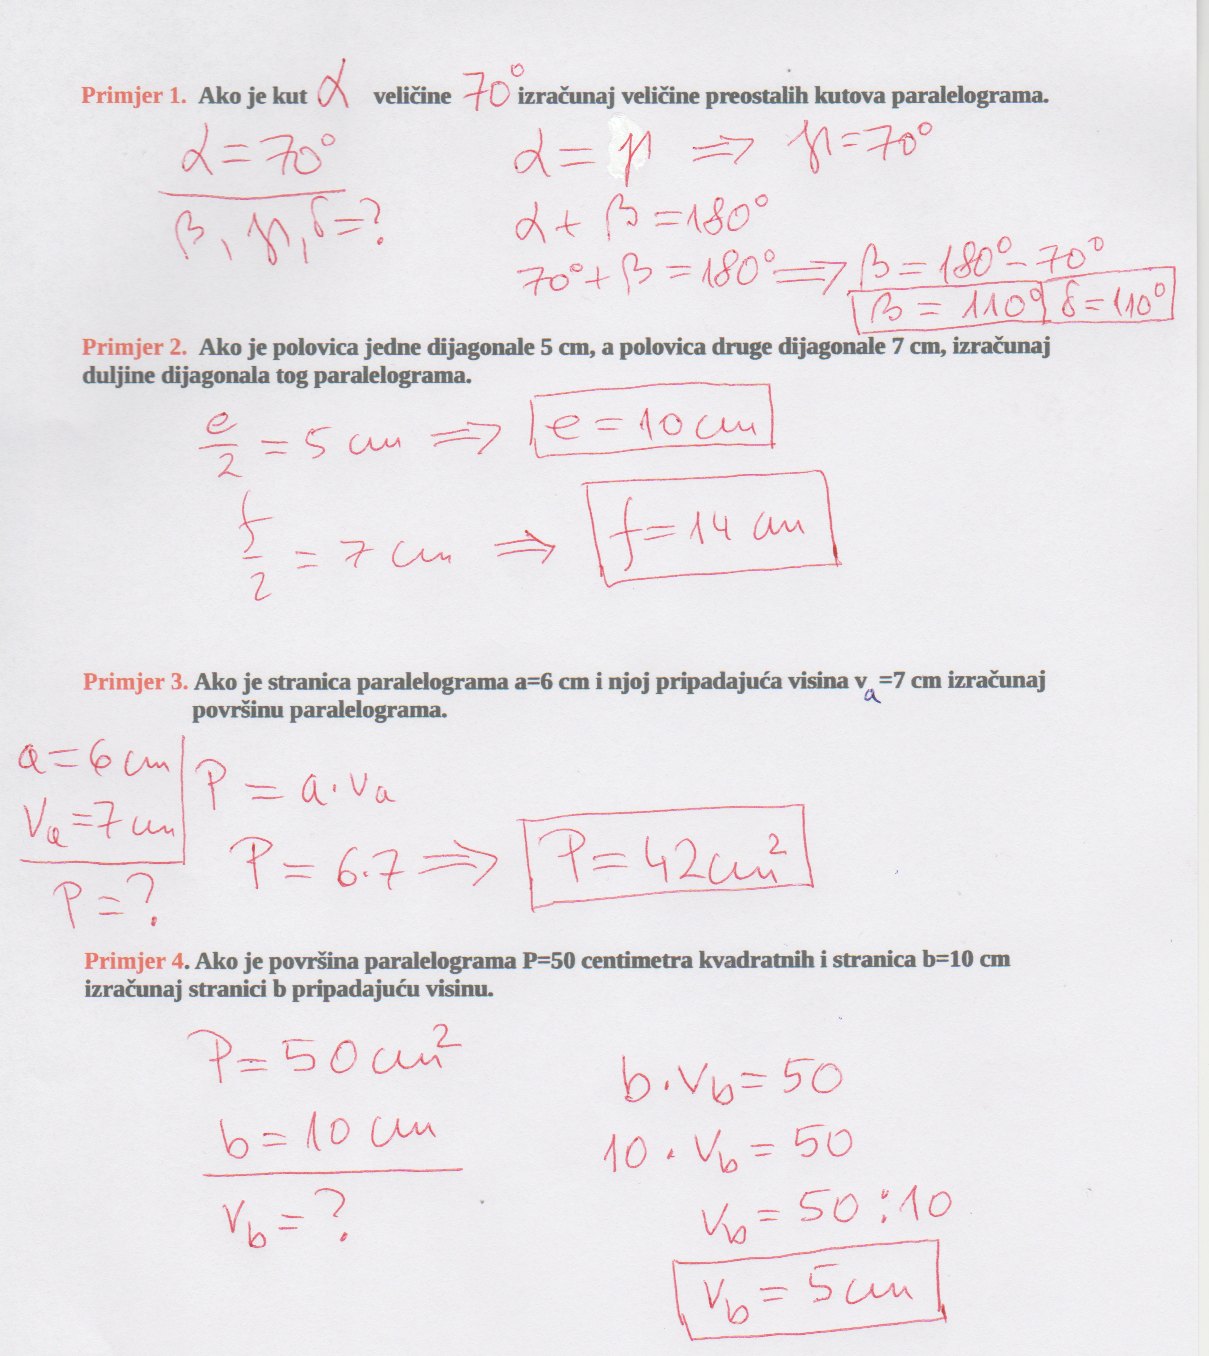 Primjer 1. Ako je kut α veličine 70° izračunaj veličine preostalih kutova paralelograma.
α = 70°
β, γ, δ = ?
α = γ ⇒ γ = 70°
α + β = 180°
70° + β = 180° ⇒ β = 180° - 70°
β = 110° δ = 110°
Primjer 2. Ako je polovica jedne dijagonale 5 cm, a polovica druge dijagonale 7 cm, izračunaj
duljine dijagonala tog paralelograma.
e/2 = 5 cm ⇒ e = 10 cm
f/2 = 7 cm ⇒ f = 14 cm
Primjer 3. Ako je stranica paralelograma a=6 cm i njoj pripadajuća visina v_a=7 cm izračunaj
površinu paralelograma.
a = 6 cm
v_a = 7 cm
P = ?
P = a · v_a
P = 6 · 7 ⇒ P = 42 cm²
Primjer 4. Ako je površina paralelograma P=50 centimetra kvadratnih i stranica b=10 cm
izračunaj stranici b pripadajuću visinu.
P = 50 cm²
b = 10 cm
v_b = ?
b · v_b = 50
10 · v_b = 50
v_b = 50 : 10
v_b = 5 cm